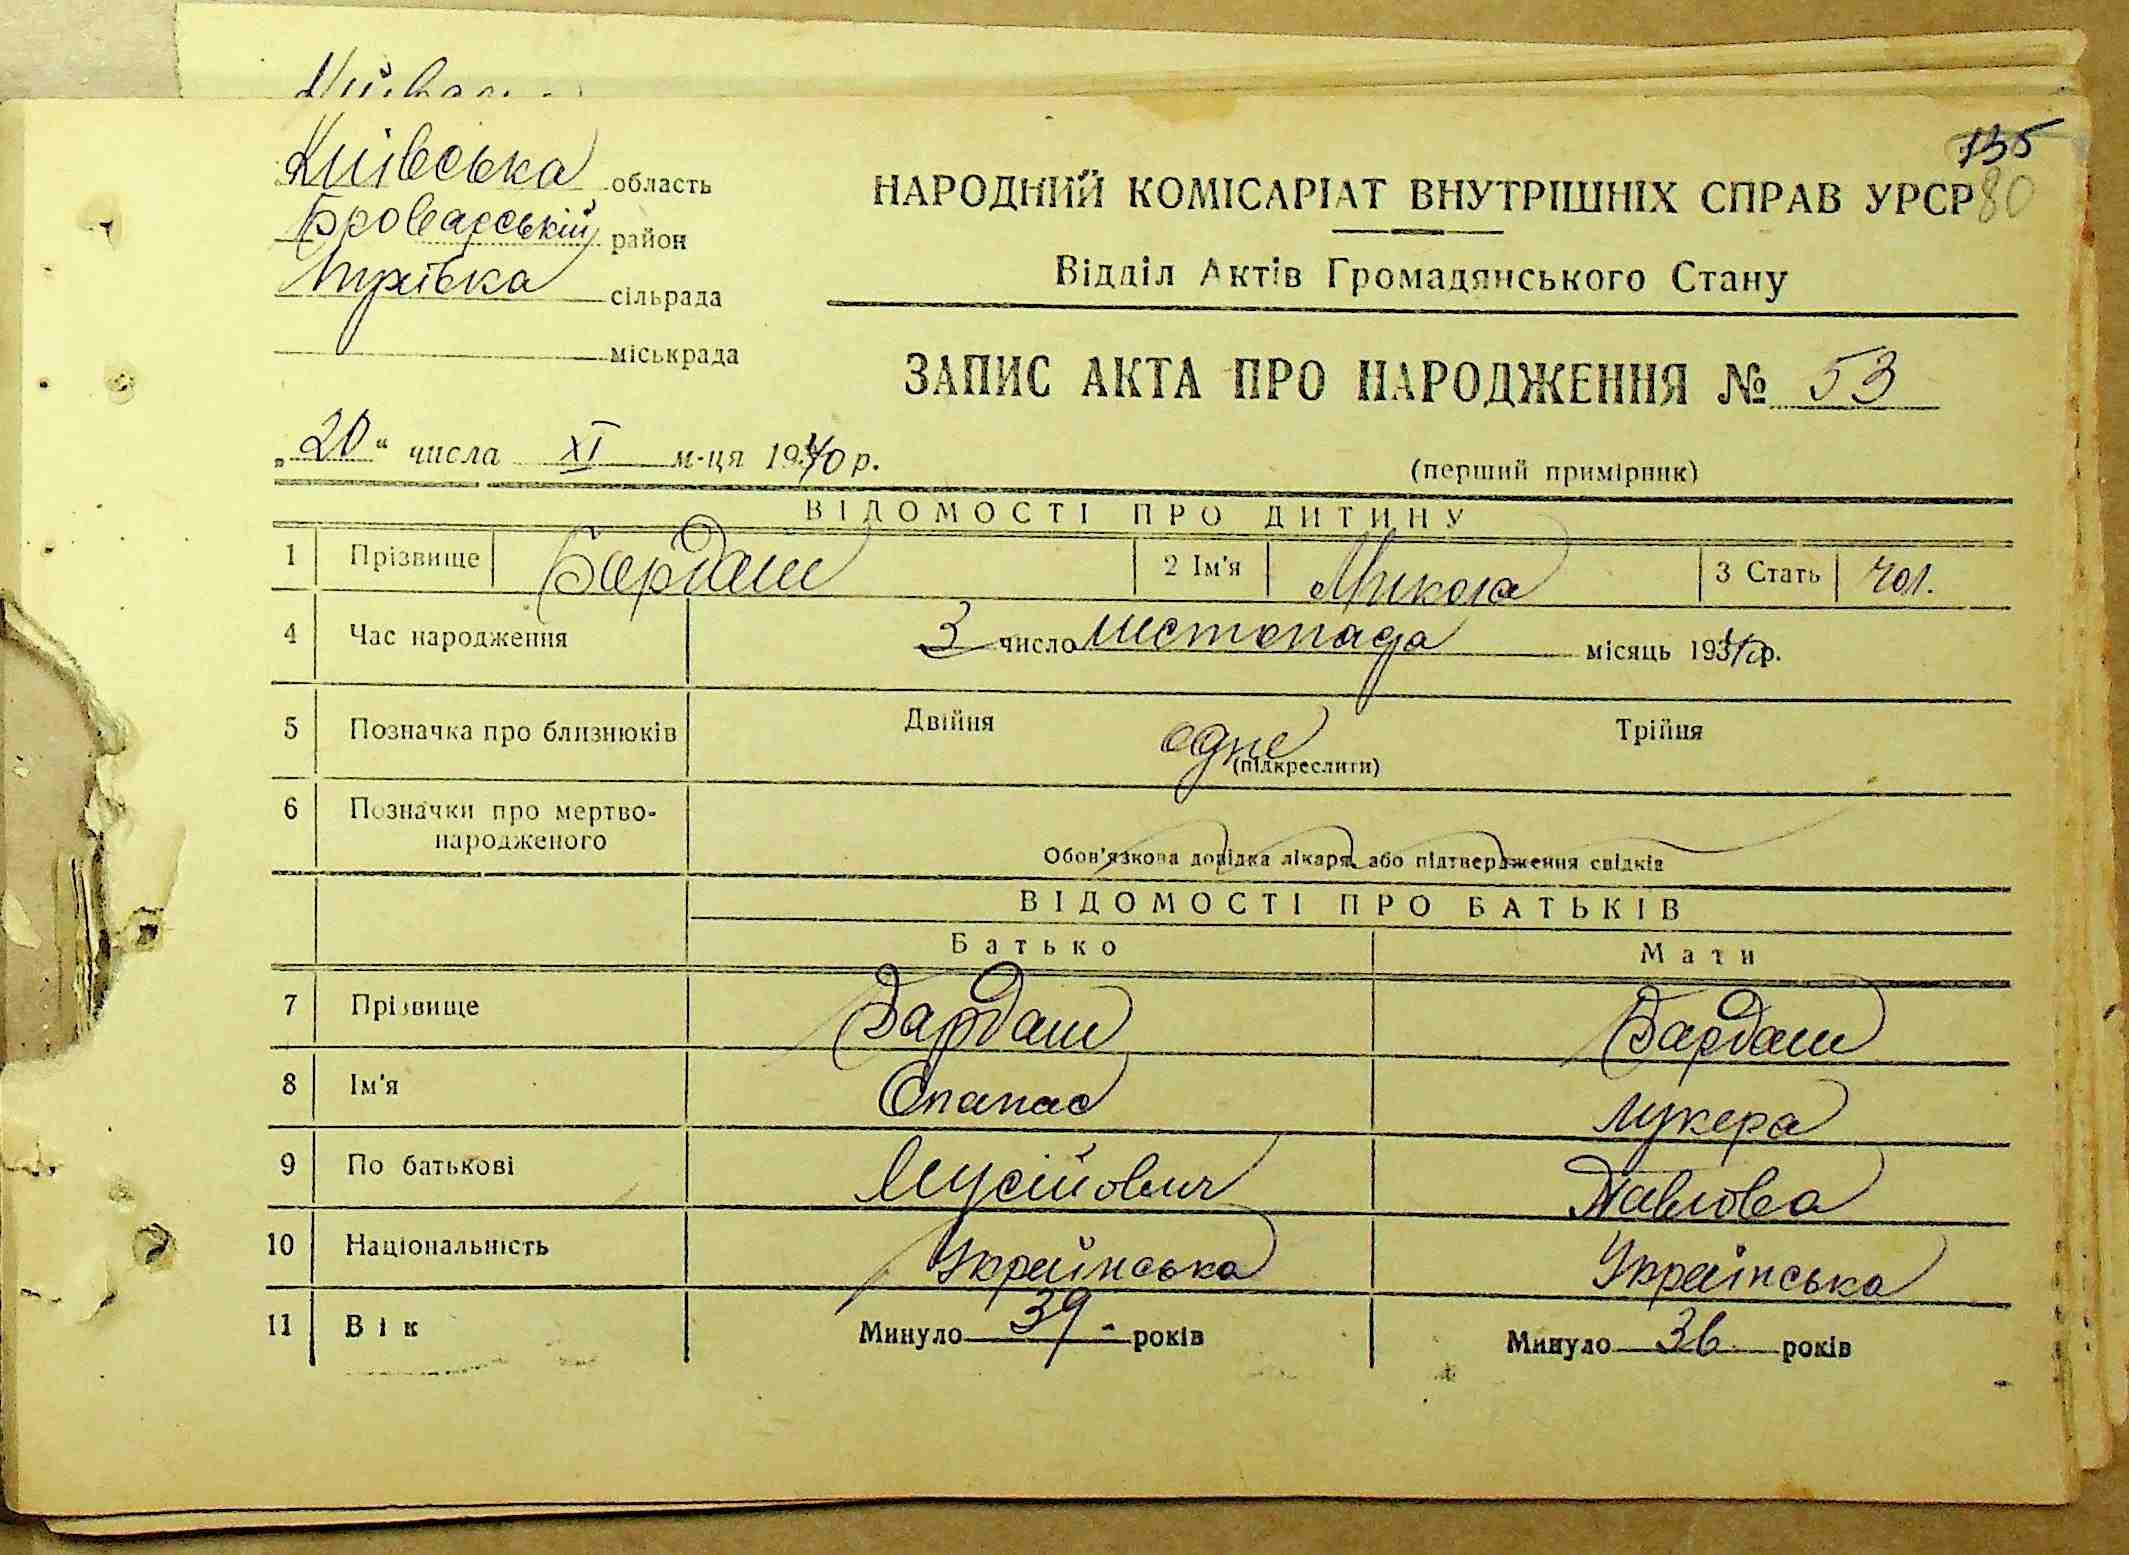 Київська область
Броварській район
Пухівка сільрада
міськрада
135
80
НАРОДНИЙ КОМІСАРІАТ ВНУТРІШНІХ СПРАВ УРСР
Відділ Актів Громадянського Стану
ЗАПИС АКТА ПРО НАРОДЖЕННЯ № 53
„20“ числа XI м-ця 1940 р.
(перший примірник)
ВІДОМОСТІ ПРО ДИТИНУ
1 Прізвище Бардаш 2 Ім'я Микола 3 Стать чол.
4 Час народження 3 число листопада місяць 1940 р.
5 Позначка про близнюків Двійня одне Трійня
(підкреслити)
6 Позначки про мертво-
народженого
Обов'язкова довідка лікаря або підтвердження свідків
ВІДОМОСТІ ПРО БАТЬКІВ
Батько Мати
7 Прізвище Бардаш Бардаш
8 Ім'я Опанас Лукера
9 По батькові Мусійович Павлова
10 Національність Українська Українська
11 Вік Минуло 39 років Минуло 36 років